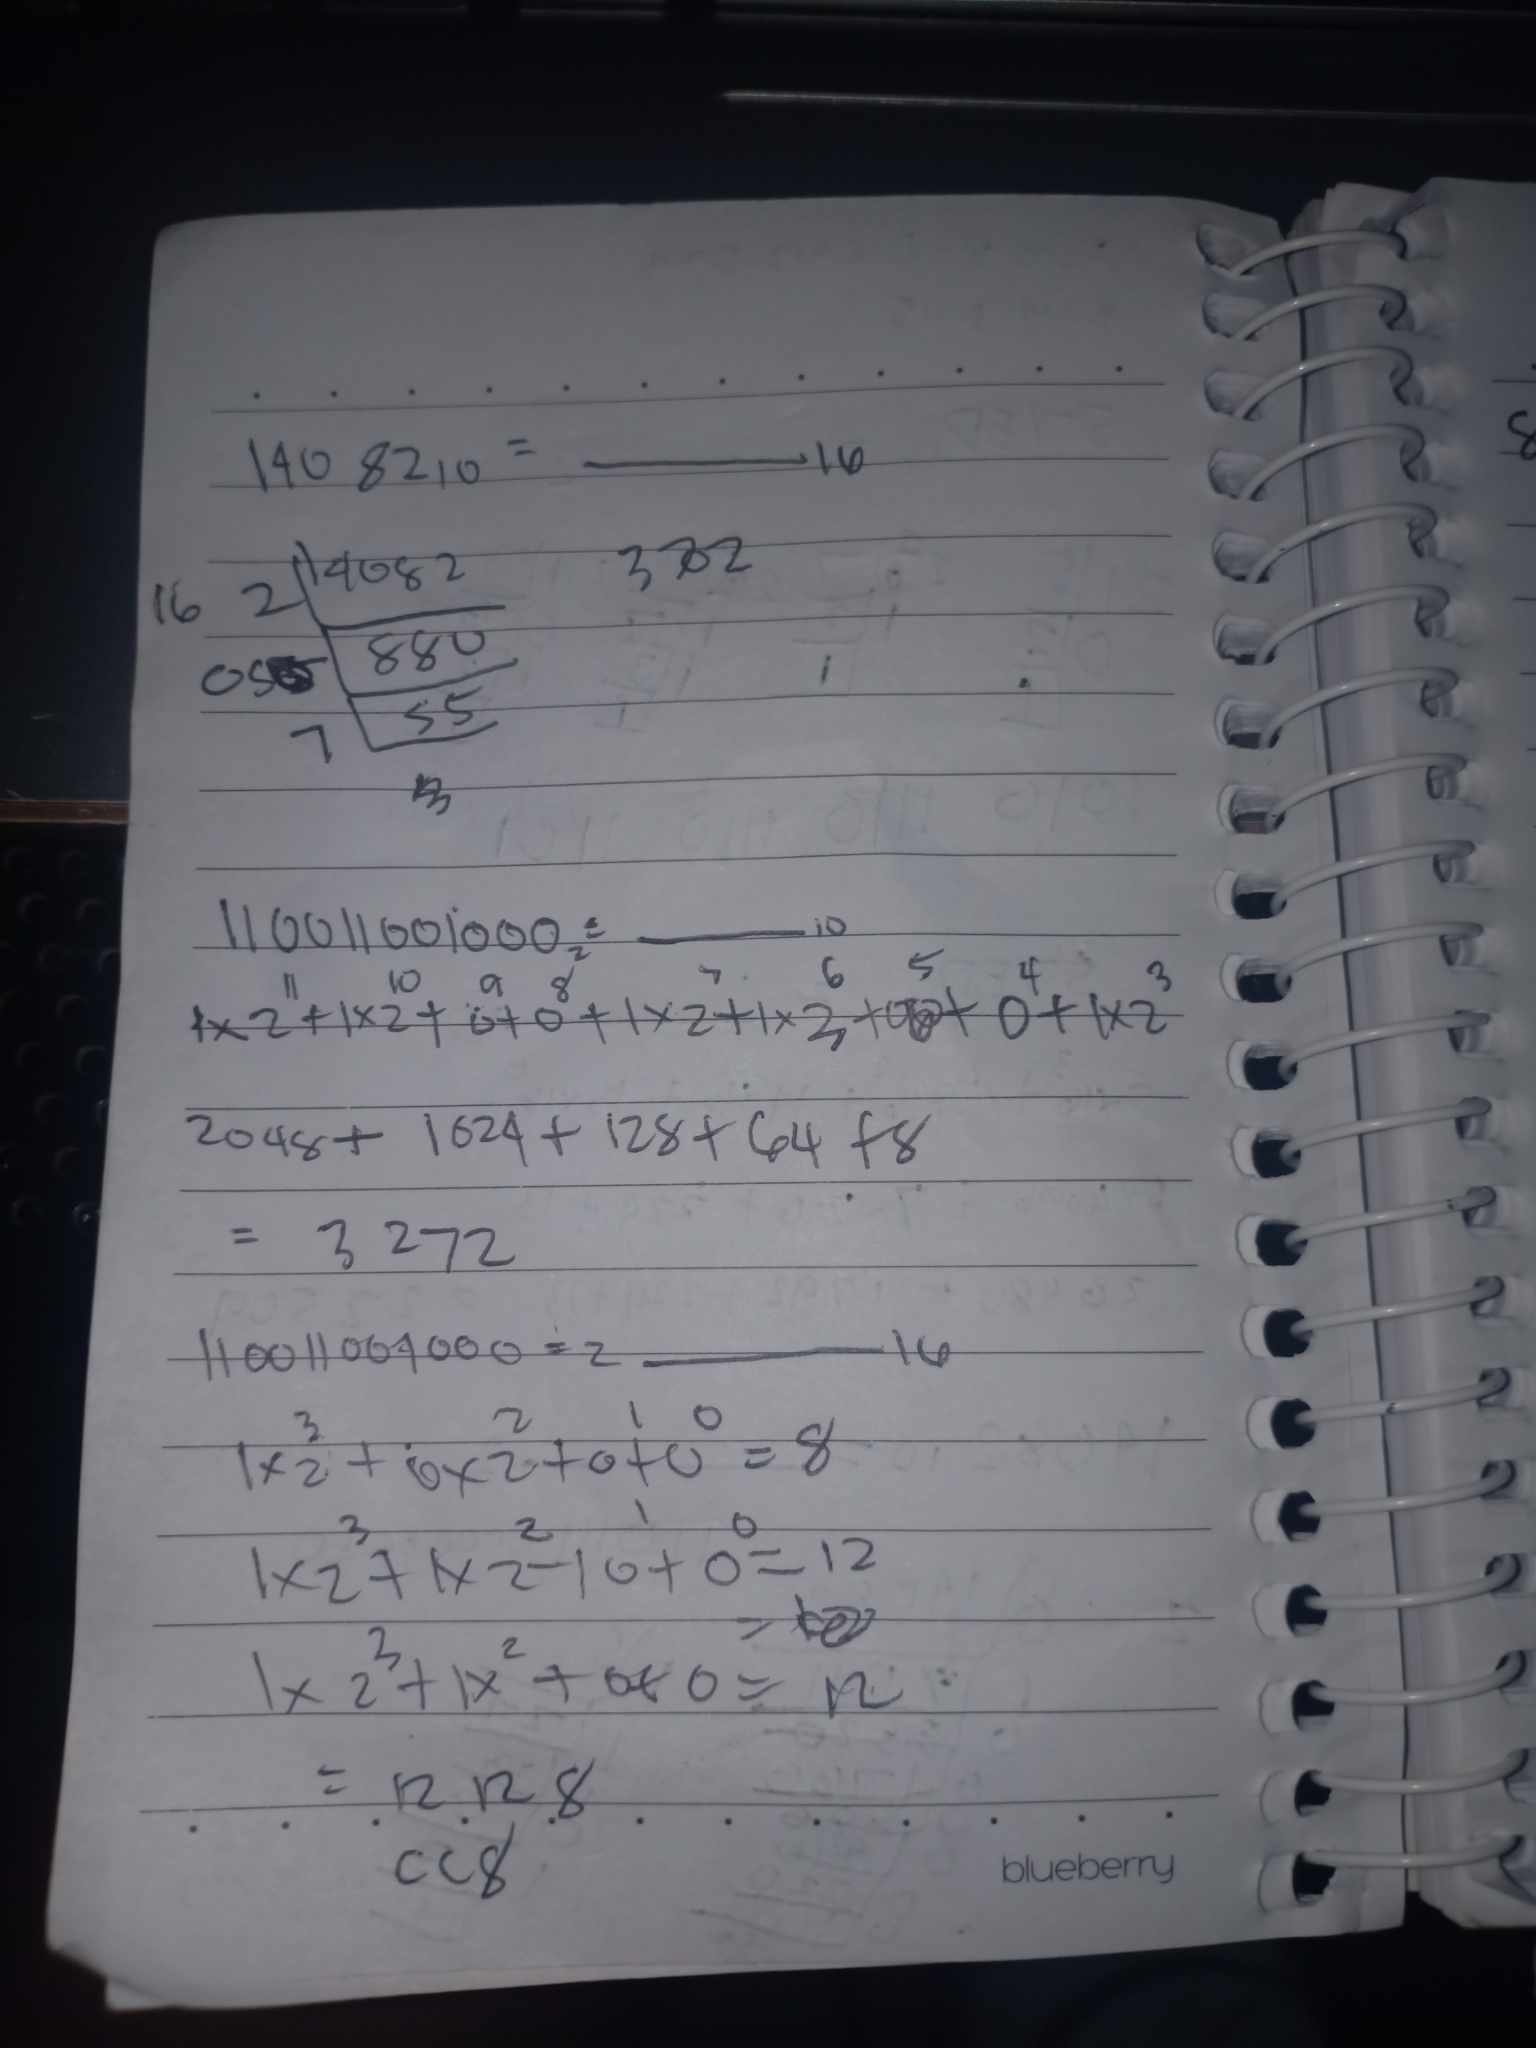 14082₁₀ = ______16
16 2 14082 372
0 880
7 55
3
110011001000₂ = ______10
1x2¹¹+1x2¹⁰+0⁹+0⁸+1x2⁷+1x2⁶+0⁵+0⁴+1x2³
2048+ 1024+128+64+8
= 3272
110011001000 =2 ______16
1x2³+0x2²+0¹+0⁰=8
1x2³+1x2²+0¹+0⁰=12
1x2³+1x²+0+0=12
= 12 12 8
CC8
blueberry